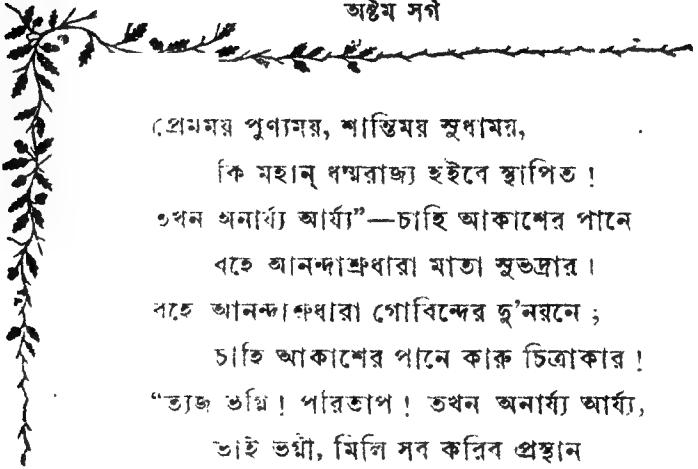 অষ্টম সর্গ
প্রেমময় পুণ্যময়, শান্তিময় সুধাময়,
কি মহান্ ধর্ম্মরাজ্য হইবে স্থাপিত !
তখন অনার্য্য আর্য্য”—চাহি আকাশের পানে
বহে আনন্দাশ্রুধারা মাতা সুভদ্রার ।
বহে আনন্দাশ্রুধারা গোবিন্দের দু’নয়নে ;
চাহি আকাশের পানে কারু চিত্রাকার !
“ত্যজ ভগ্নি ! পরিতাপ ! তখন অনার্য্য আর্য্য,
ভাই ভগ্নী, মিলি সব করিব প্রস্থান